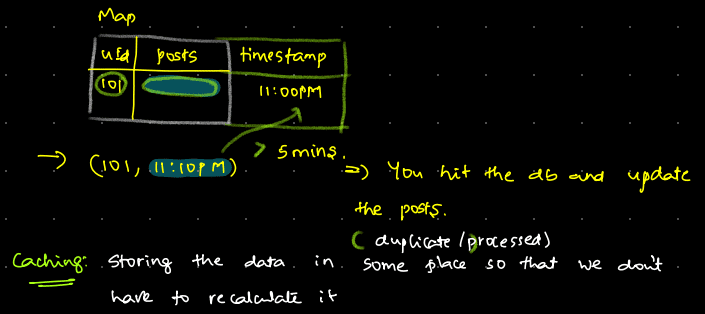 Map
uId posts timestamp
101 11:00PM
→ (101, 11:10PM) > 5 mins.
=) You hit the db and update
the posts.
( duplicate / processed)
Caching: Storing the data in some place so that we don't
have to recalculate it